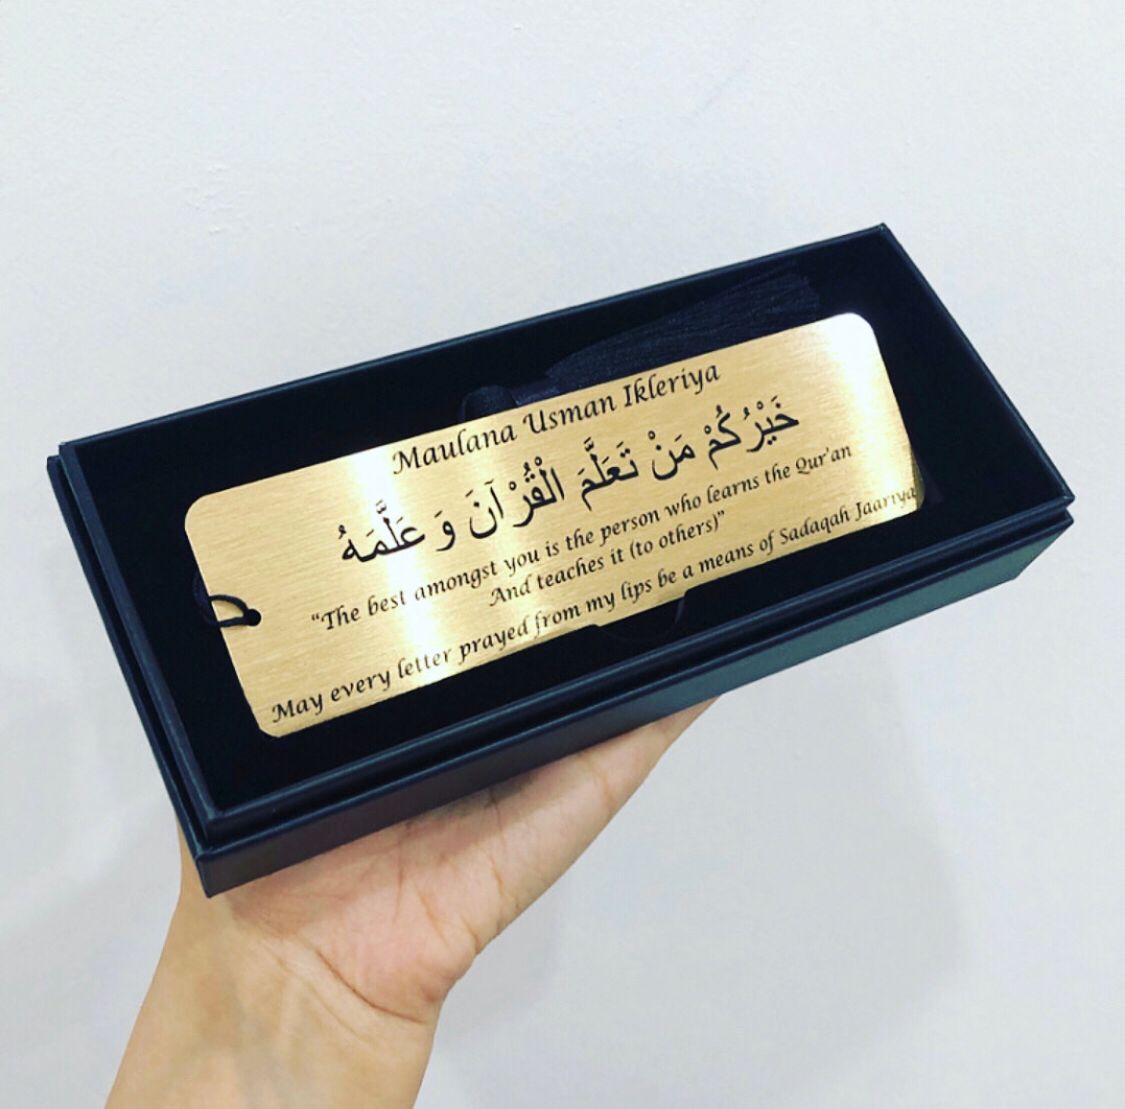 Maulana Usman Ikleriya
خَيْرُكُمْ مَنْ تَعَلَّمَ الْقُرْآنَ وَ عَلَّمَهُ
“The best amongst you is the person who learns the Qur'an
And teaches it (to others)”
May every letter prayed from my lips be a means of Sadaqah Jaariya